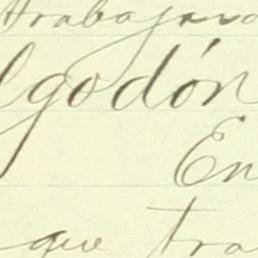 trabajaro
lgodón
En
que tra